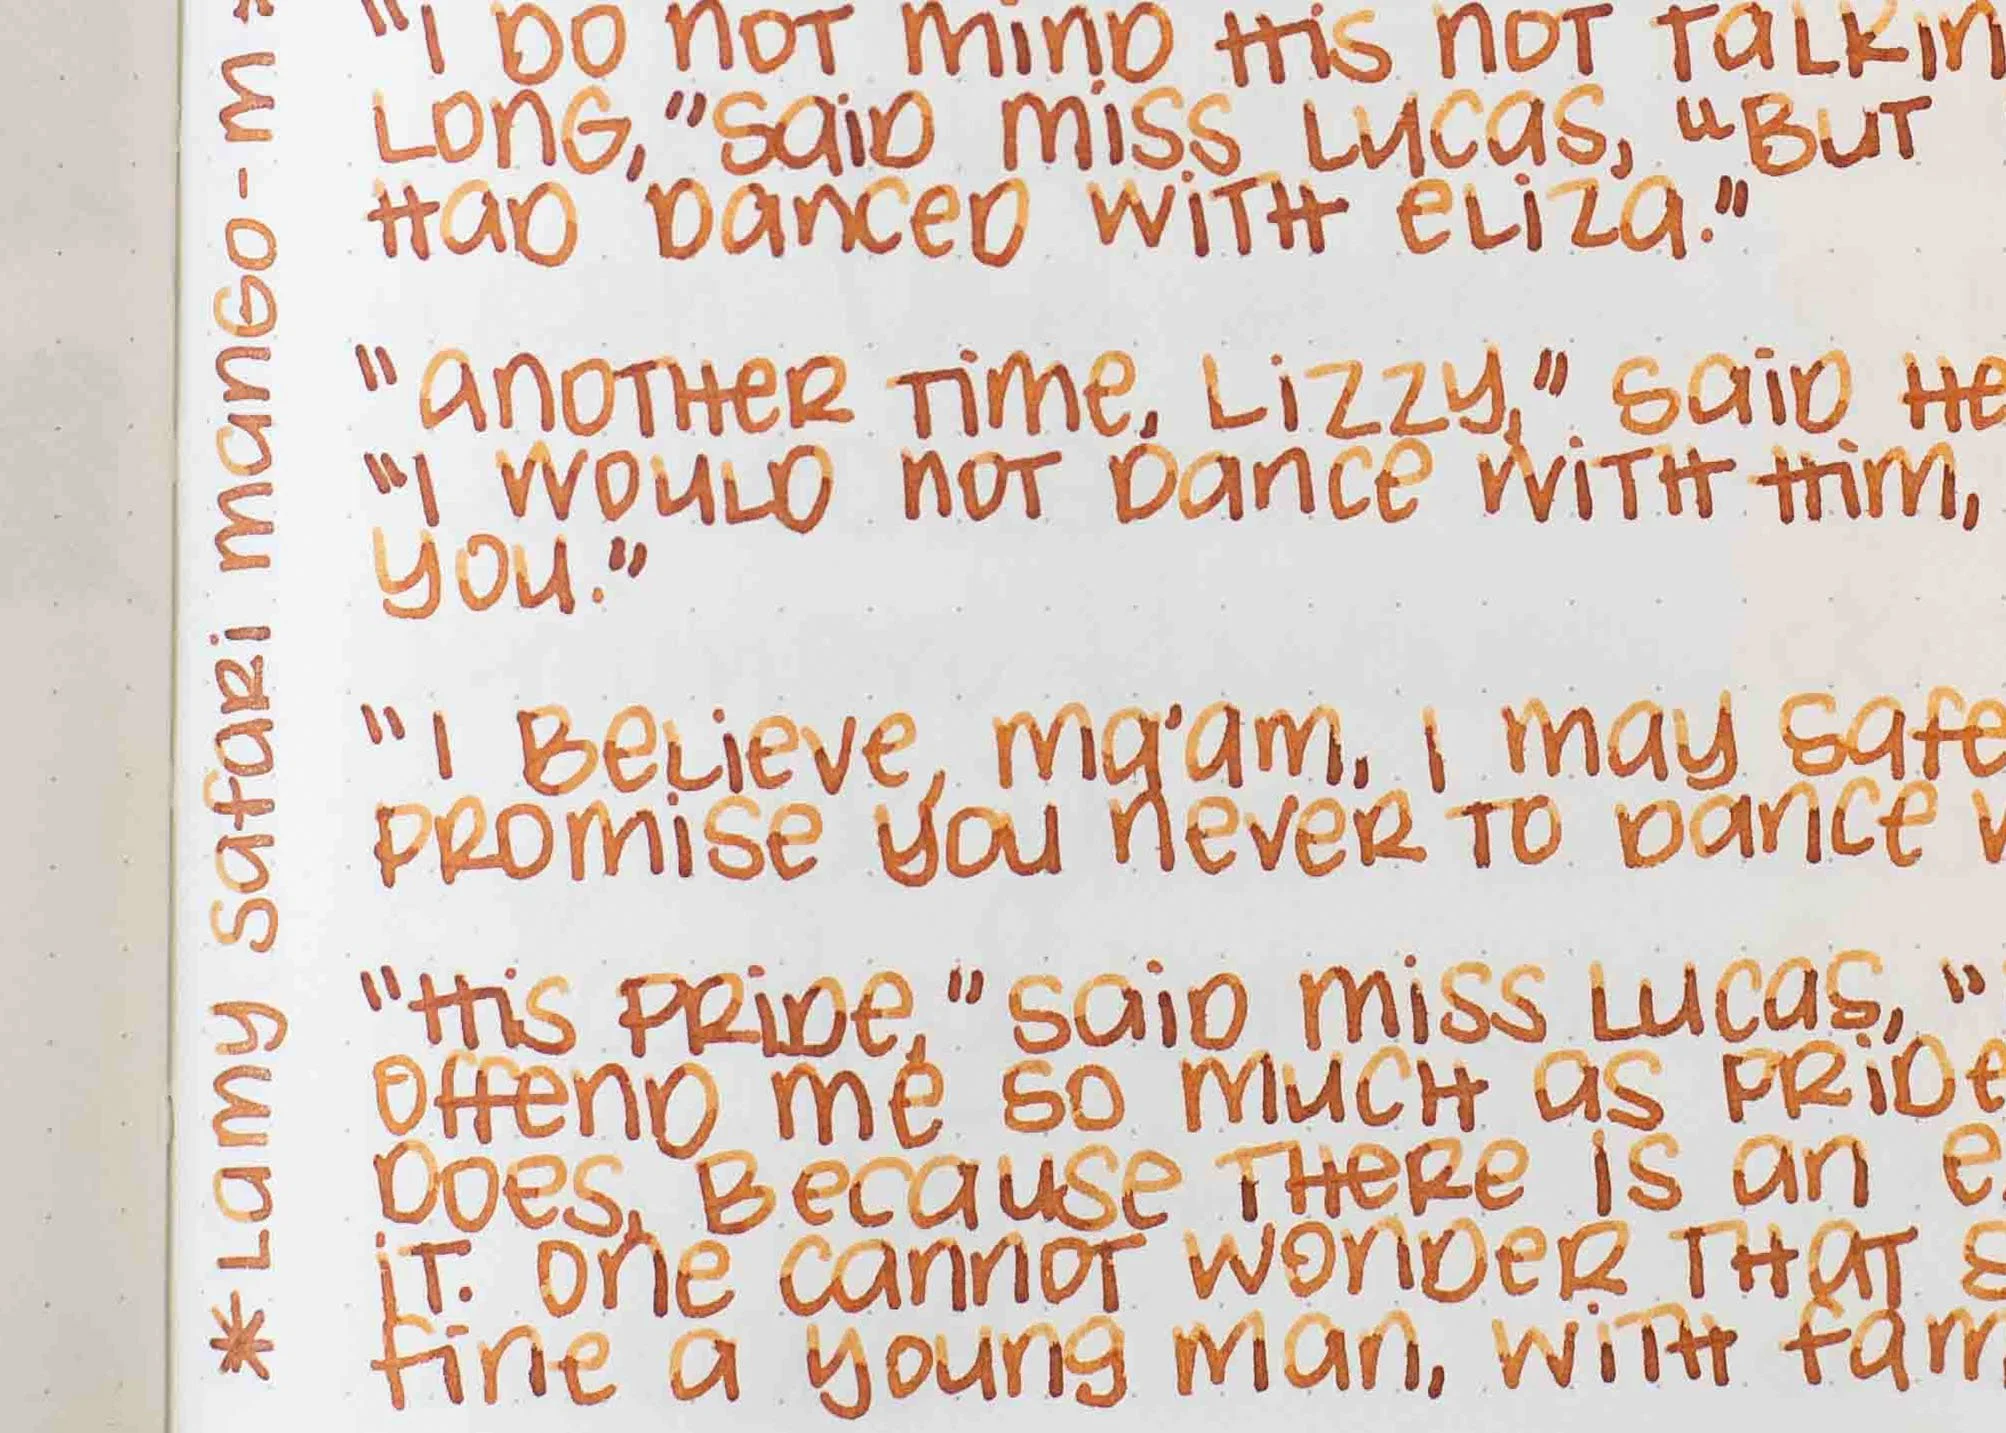 "I DO NOT MIND HIS NOT TALKIN
LONG," SAID MISS LUCAS, "BUT
HAD DANCED WITH ELIZA."
"ANOTHER TIME, LIZZY," SAID HE
"I WOULD NOT DANCE WITH HIM,
YOU."
"I BELIEVE, MA'AM, I MAY SAFE
PROMISE YOU NEVER TO DANCE W
"HIS PRIDE," SAID MISS LUCAS, "
OFFEND ME SO MUCH AS PRIDE
DOES, BECAUSE THERE IS AN E
IT. ONE CANNOT WONDER THAT S
FINE A YOUNG MAN, WITH FAM
*LAMY SAFARI MANGO-M*